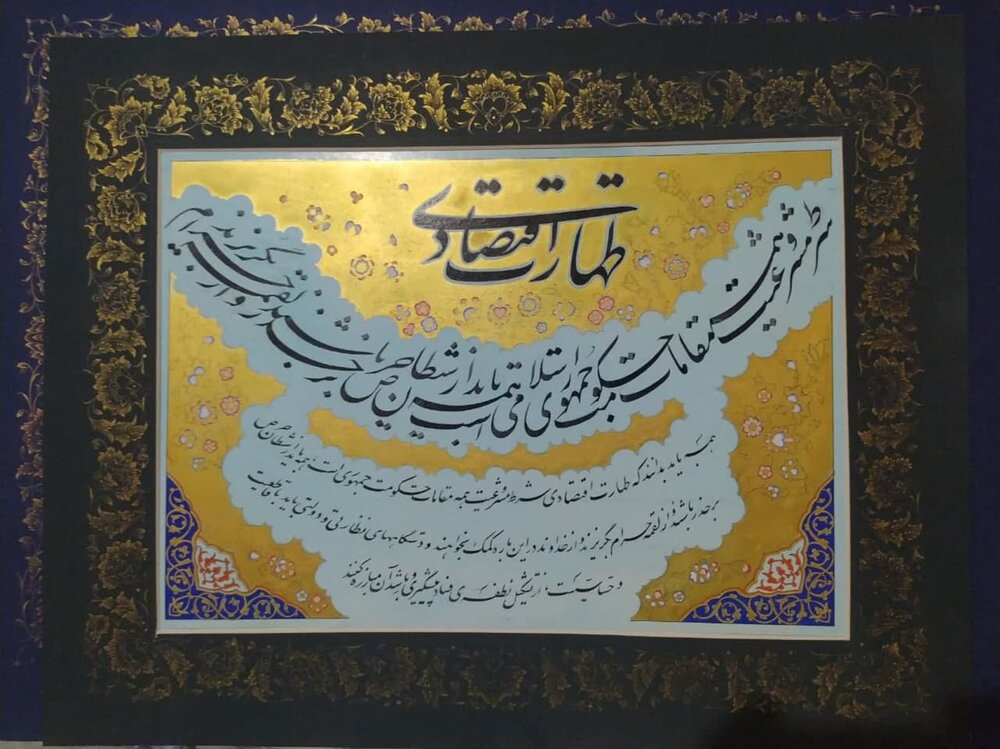 طهارت اقتصادی
شرط مشروعیت همه مقامات حکومت جمهوری اسلامی است همه باید از شیطان حرص برحذر باشند و از لقمه حرام بگریزند
همه باید بدانند که طهارت اقتصادی شرط مشروعیت همه مقامات حکومت جمهوری است همه باید از شیطان حرص
برحذر باشند و از لقمه حرام بگریزند و از خداوند در این باره کمک بخواهند و دستگاههای نظارتی و دولتی باید با قاطعیت
و حساسیت از تشکیل نطفه ی فساد پیشگیری و با رشد آن مبارزه کنند